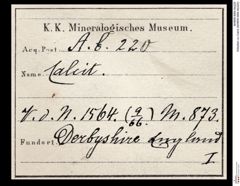 K. K. Mineralogisches Museum.
Acq. Post A. b. 220
Name Calcit.
V. d. N. 1564. (9/66.) M. 873.
Fundort Derbyshire England
I.